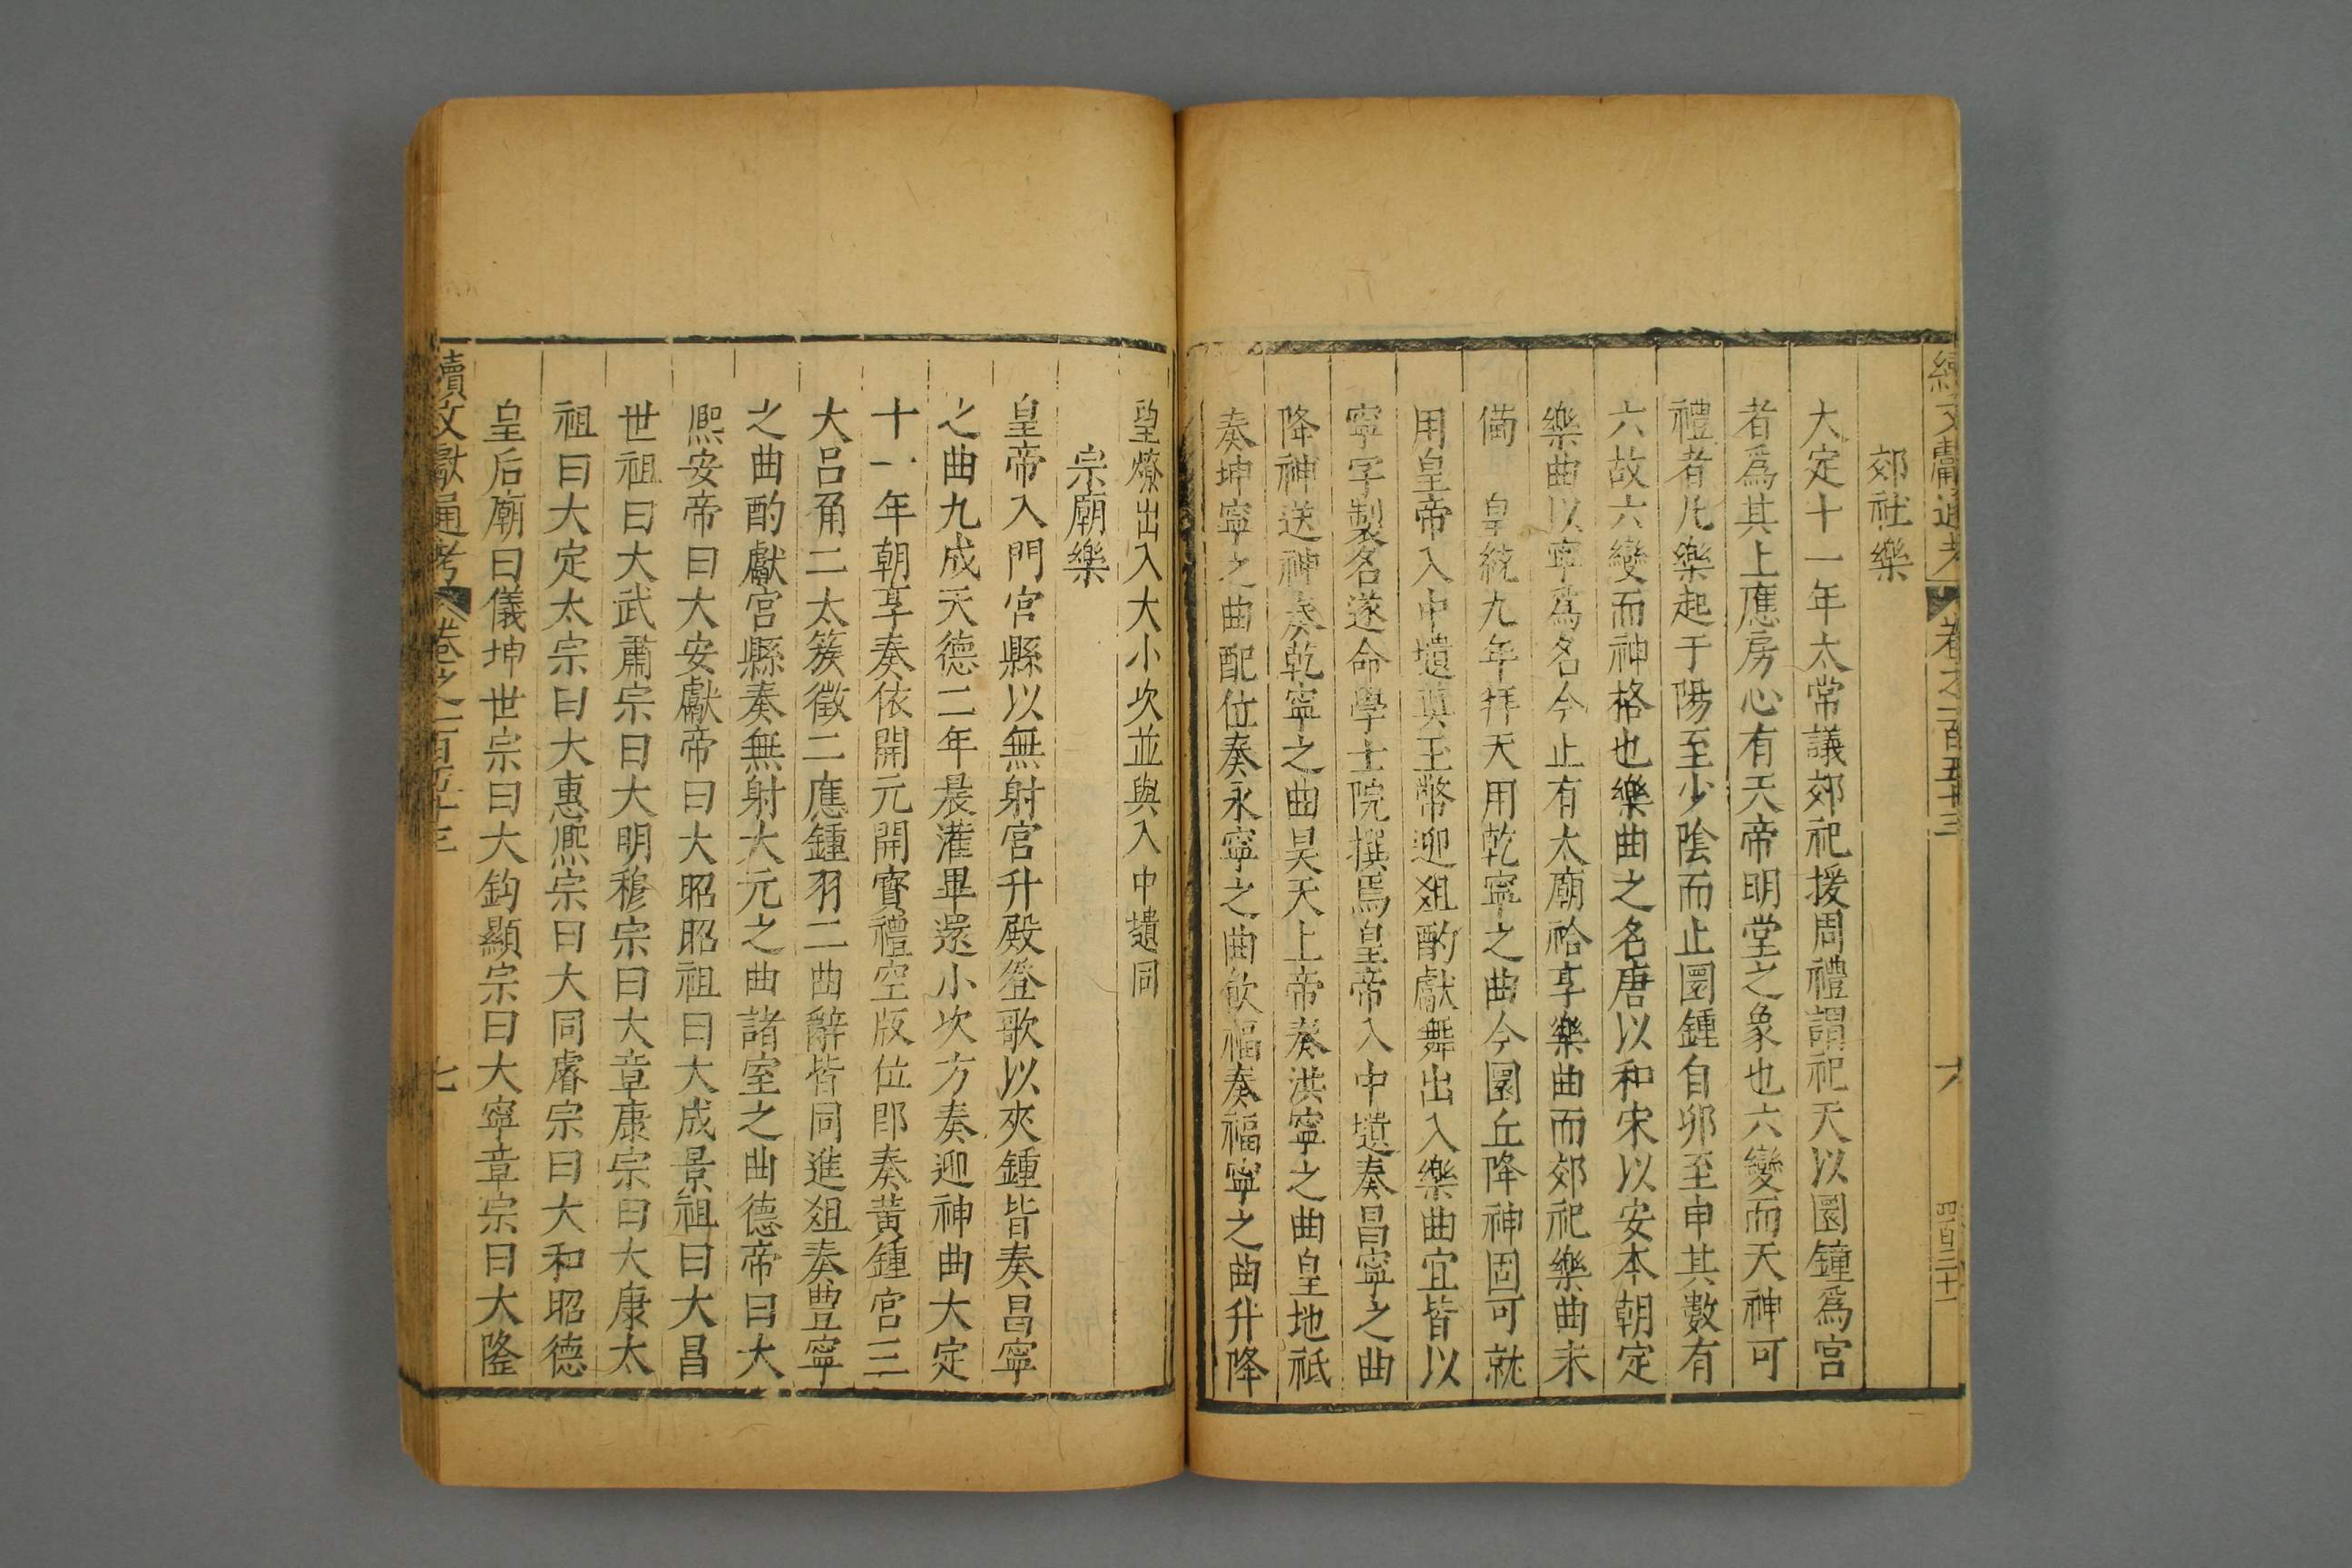 續文獻通考 卷之一百五十三 六 四百三十一
郊社樂
大定十一年太常議郊祀援周禮謂祀天以圜鐘爲宮
者爲其上應房心有天帝明堂之象也六變而天神可
禮者凡樂起于陽至少陰而止圜鍾自卯至申其數有
六故六變而神格也樂曲之名唐以和宋以安本朝定
樂曲以寧爲名今止有太廟祫享樂曲而郊祀樂曲未
備 皇統九年拜天用乾寧之曲今圜丘降神固可就
用皇帝入中壝奠玉幣迎俎酌獻舞出入樂曲宜皆以
寧字製名遂命學士院撰焉皇帝入中壝奏昌寧之曲
降神送神奏乾寧之曲昊天上帝奏洪寧之曲皇地祇
奏坤寧之曲配位奏永寧之曲飲福奏福寧之曲升降
望燎出入大小次並與入中壝同
宗廟樂
皇帝入門宮縣以無射宮升殿登歌以夾鍾皆奏昌寧
之曲九成天德二年晨灌畢還小次方奏迎神曲大定
十一年朝享奏依開元開寶禮空版位卽奏黃鍾宮三
大呂角二太簇徵二應鍾羽二曲辭皆同進俎奏豊寧
之曲酌獻宮縣奏無射大元之曲諸室之曲德帝曰大
熈安帝曰大安獻帝曰大昭昭祖曰大成景祖曰大昌
世祖曰大武肅宗曰大明穆宗曰大章康宗曰大康太
祖曰大定太宗曰大惠熈宗曰大同睿宗曰大和昭德
皇后廟曰儀坤世宗曰大鈞顯宗曰大寧章宗曰大隆
續文獻通考 卷之一百五十三 七